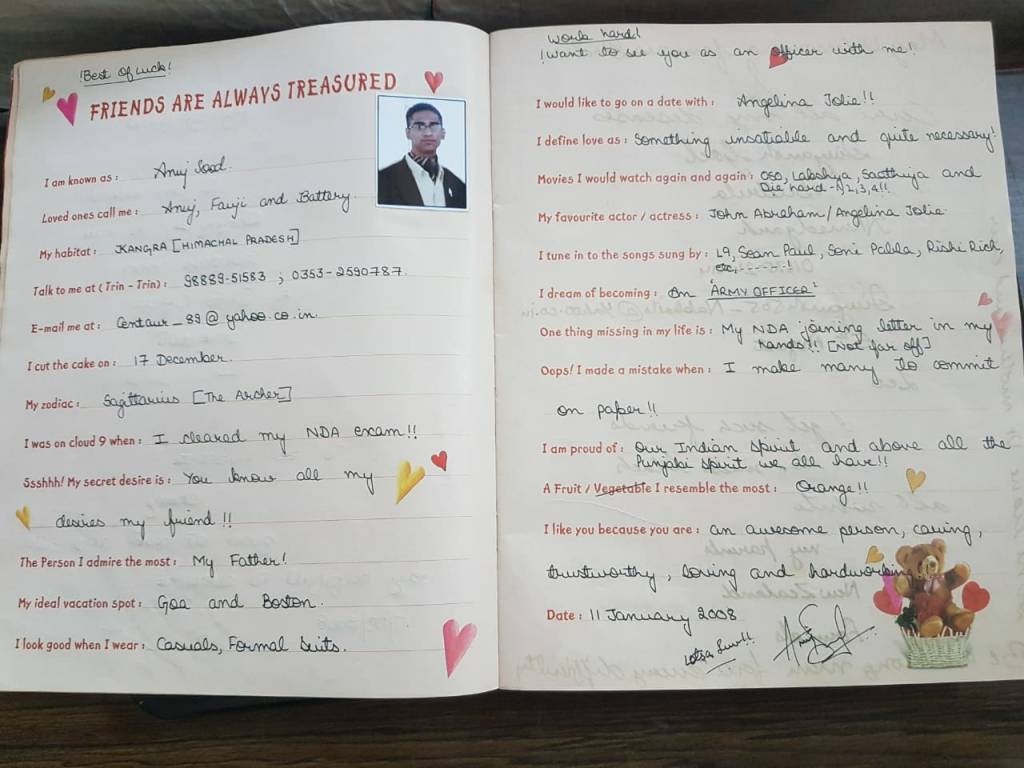 !Best of Luck!
FRIENDS ARE ALWAYS TREASURED
I am known as : Anuj Sood.
Loved ones call me : Anuj, Fauji and Battery.
My habitat : KANGRA [HIMACHAL PRADESH]
Talk to me at (Trin - Trin) : 98889-51583 ; 0353-2590787.
E-mail me at : Centaur_89@yahoo.co.in.
I cut the cake on : 17 December.
My zodiac : Sagittarius [The Archer]
I was on cloud 9 when : I cleared my NDA exam!!
Ssshhh! My secret desire is : You know all my
desires my friend!!
The Person I admire the most : My Father!
My ideal vacation spot : Goa and Boston.
I look good when I wear : Casuals, Formal Suits.
Work hard!
!Want to see you as an officer with me!
I would like to go on a date with : Angelina Jolie!!
I define love as : Something insatiable and quite necessary!
Movies I would watch again and again : OSO, Lakshya, Saathiya and
Die hard - 1,2,3,4!!
My favourite actor / actress : John Abraham/Angelina Jolie
I tune in to the songs sung by : L9, Sean Paul, Soni Pabla, Rishi Rich,
etc,------!
I dream of becoming : An "ARMY OFFICER"
One thing missing in my life is : My NDA joining letter in my
hands!! [Not far off]
Oops! I made a mistake when : I make many to commit
on paper!!
I am proud of : Our Indian spirit and above all the
Punjabi spirit we all have!!
A Fruit / Vegetable I resemble the most : Orange!!
I like you because you are : an awesome person, caring,
trustworthy, loving and hardworking
Date : 11 January 2008
Lotsa Luv!!